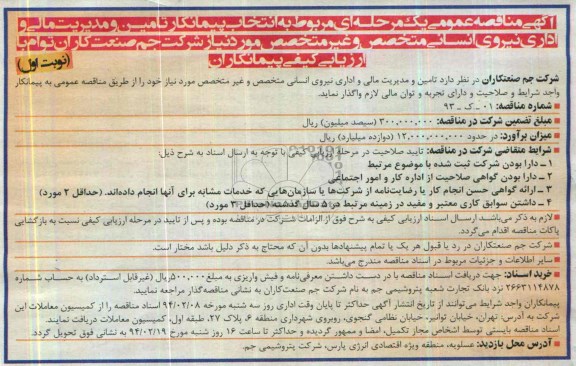 آگهی مناقصه عمومی یک مرحله ای مربوط به انتخاب پیمانکار تامین و مدیریت مالی و
اداری نیروی انسانی متخصص و غیر متخصص مورد نیاز شرکت جم صنعت کاران توام با
ارزیابی کیفی پیمانکاران
(نوبت اول)
شرکت جم صنعتکاران در نظر دارد تامین و مدیریت مالی و اداری نیروی انسانی متخصص و غیر متخصص مورد نیاز خود را از طریق مناقصه عمومی به پیمانکار
واجد شرایط و صلاحیت و دارای تجربه و توان مالی لازم واگذار نماید.
* شماره مناقصه: ۰۱ - ک - ۹۳
* مبلغ تضمین شرکت در مناقصه: ۳۰۰,۰۰۰,۰۰۰ (سیصد میلیون) ریال
* میزان برآورد: در حدود ۱۲,۰۰۰,۰۰۰,۰۰۰ (دوازده میلیارد) ریال
* شرایط متقاضی شرکت در مناقصه: تایید صلاحیت در مرحله کیفی با توجه به ارسال اسناد به شرح ذیل:
۱ - دارا بودن شرکت ثبت شده با موضوع مرتبط
۲ - دارا بودن گواهی صلاحیت از اداره کار و امور اجتماعی
۳ - ارائه گواهی حسن انجام کار یا رضایت نامه از شرکت ها یا سازمان هایی که خدمات مشابه برای آنها انجام داده اند. (حداقل ۲ مورد)
۴ - داشتن سوابق کاری معتبر و مفید در زمینه مرتبط در ۵ سال گذشته (حداقل ۳ مورد)
* لازم به ذکر می باشد، ارسال اسناد ارزیابی کیفی به شرح فوق از الزامات شرکت در مناقصه بوده و پس از تایید در مرحله ارزیابی کیفی نسبت به بازگشایی
پاکات مناقصه اقدام می گردد.
* شرکت جم صنعتکاران در رد یا قبول هر یک یا تمام پیشنهادها بدون آن که محتاج به ذکر دلیل باشد مختار است.
* سایر اطلاعات و جزئیات مربوط در اسناد مناقصه مندرج می باشد.
* خرید اسناد: جهت دریافت اسناد مناقصه با در دست داشتن معرفی نامه و فیش واریزی به مبلغ ۵۰۰,۰۰۰ ریال (غیرقابل استرداد) به حساب شماره
۲۶۶۳۱۱۴۸۷۸ نزد بانک تجارت شعبه پتروشیمی جم به نام شرکت جم صنعت کاران به نشانی مناقصه گذار مراجعه نمایید.
پیمانکاران واجد شرایط می توانند از تاریخ انتشار آگهی حداکثر تا پایان وقت اداری روز سه شنبه مورخه ۹۴/۰۲/۰۸ اسناد مناقصه را از کمیسیون معاملات این
شرکت به آدرس: تهران، خیابان ثوانیر، خیابان نظامی گنجوی، روبروی شهرداری منطقه ۶، پلاک ۲۷، طبقه اول، کمیسیون معاملات دریافت نمایند.
اسناد مناقصه بایستی توسط اشخاص مجاز تکمیل، امضا و ممهور گردیده و حداکثر تا ساعت ۱۶ روز شنبه مورخ ۹۴/۰۲/۱۹ به نشانی فوق تحویل گردد.
* آدرس محل بازدید: عسلویه، منطقه ویژه اقتصادی انرژی پارس، شرکت پتروشیمی جم.